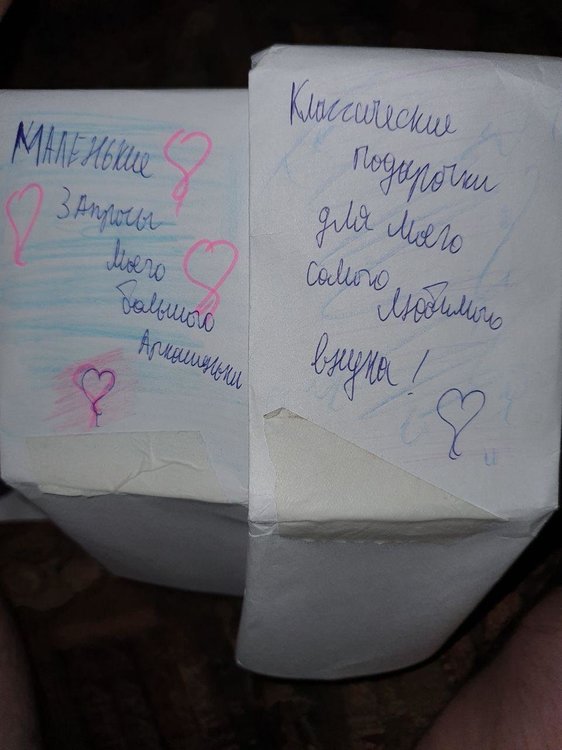 Маленькие
Запросы
моего
большого
Аркашеньки
Классические
подарочки
для моего
самого
любимого
внука!